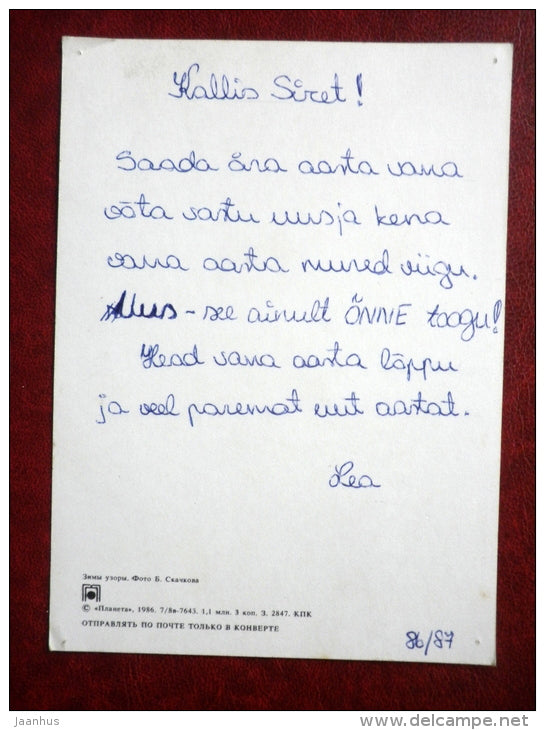 Kallis Siret!
Saada ära aasta vana
võta vastu uus ja kena
vana aasta mured viigu.
Uus - see ainult ÕNNE toogu!
Head vana aasta lõppu
ja veel paremat uut aastat.
Lea
Зимы узоры. Фото Б. Скачкова
© «Планета», 1986. 7/8в-7645. 1,1 млн. 3 коп. З. 2847. КПК
ОТПРАВЛЯТЬ ПО ПОЧТЕ ТОЛЬКО В КОНВЕРТЕ
86/87
jaanhus
www.delcampe.net